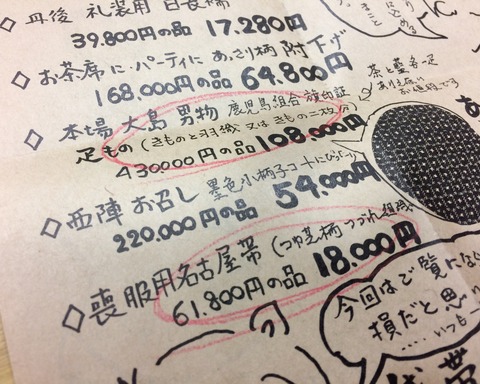 ◇丹後 礼装用 白長襦
39.800円の品 17.280円
◇お茶席に パーティに あっさり柄 附下げ
168.000円の品 64.800円
◇本場 大島 男物 鹿児島組合 旗印証
疋もの(きものと羽織 又は きもの二枚分)
430.000円の品 108.000円
茶と藍各一疋
◇西陣 お召し 墨色小柄子コートに
220.000円の品 54.000円
◇喪服用名古屋帯(つゆ芝柄 つづれ組織
61.800円の品 18.000円
今回はご覧にな
損だと思
....いつも